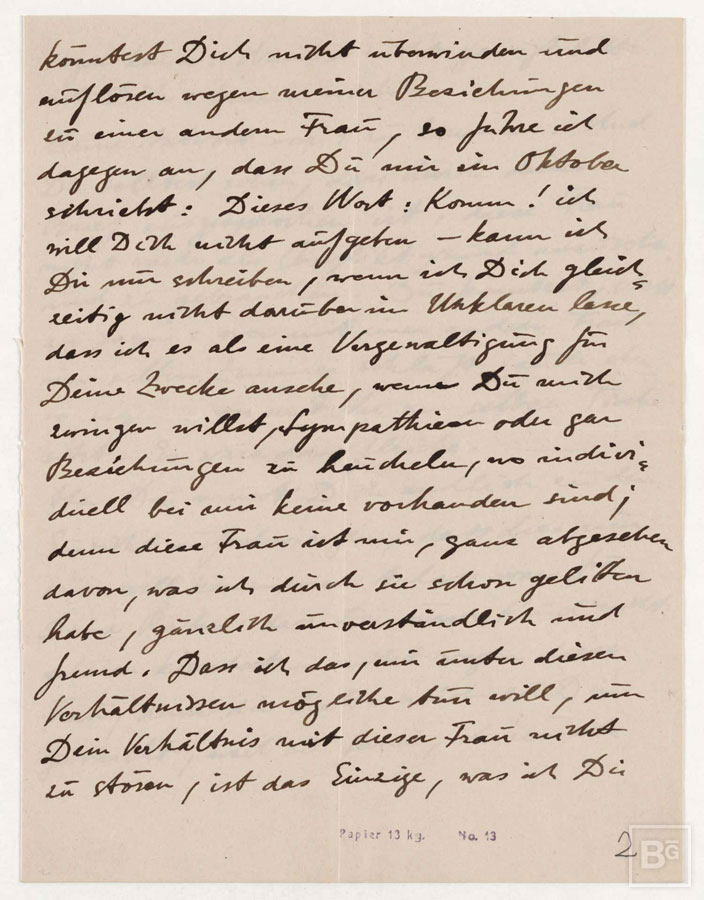 könntest Dich nicht überwinden und
auflösen wegen meiner Beziehungen
zu einer andern Frau, so führe ich
dagegen an, dass Du mir im Oktober
schriebst: Dieses Wort: Komm! ich
will Dich nicht aufgeben – kann ich
Dir nur schreiben, wenn ich Dich gleich=
zeitig nicht darüber im Unklaren lasse,
dass ich es als eine Vergewaltigung für
Deine Zwecke ansehe, wenn Du mich
zwingen willst, Sympathien oder gar
Beziehungen zu heucheln, wo indivi=
duell bei mir keine vorhanden sind;
denn diese Frau ist mir, ganz abgesehen
davon, was ich durch sie schon gelitten
habe, gänzlich unverständlich und
fremd. Dass ich das, mir unter diesen
Verhältnissen mögliche tun will, um
Dein Verhältnis mit dieser Frau nicht
zu stören, ist das Einzige, was ich Dir
Papier 13 kg. No. 13
2
BG